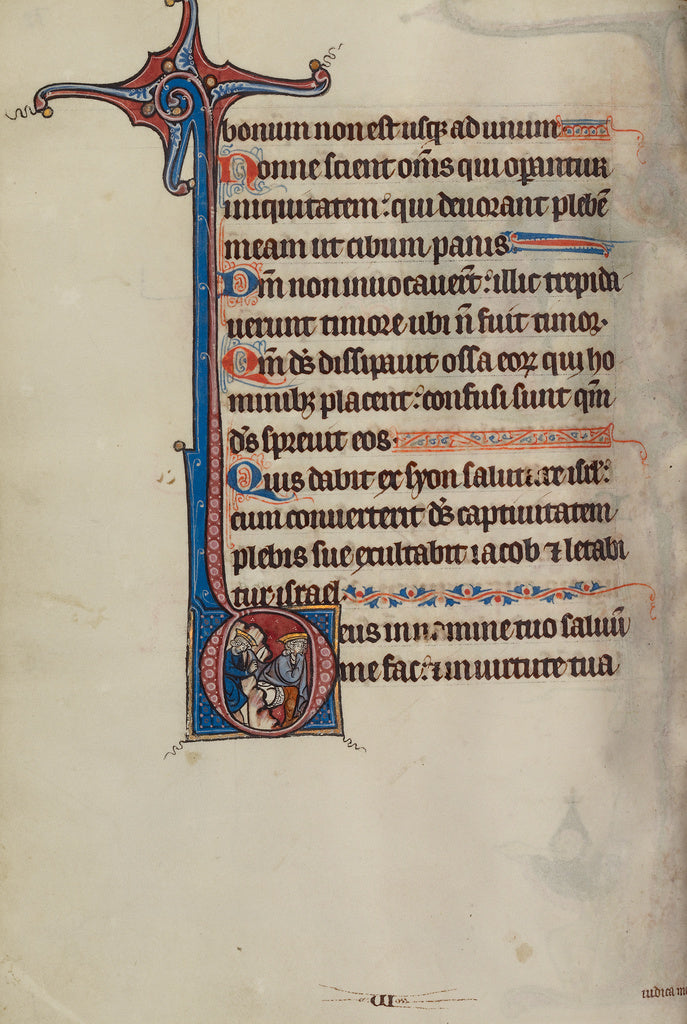 bonum non est usqꝫ ad unum
Nonne scient om̄s qui oꝑantur
iniquitatem: qui deuorant plebē
meam ut cibum panis
Dm̄ non inuocauer̄t: illic trepida
uerunt timore ubi n̄ fuit timor.
Qm̄ ds̄ dissipauit ossa eoꝝ qui ho
minibꝫ placent: confusi sunt qm̄
ds̄ spreuit eos.
Quis dabit ex syon salutare isrl̄:
cum conuerterit ds̄ captiuitatem
plebis sue exultabit iacob ⁊ letabi
tur israel.
Deus in nomine tuo saluū
me fac: ⁊ in uirtute tua
iudica me